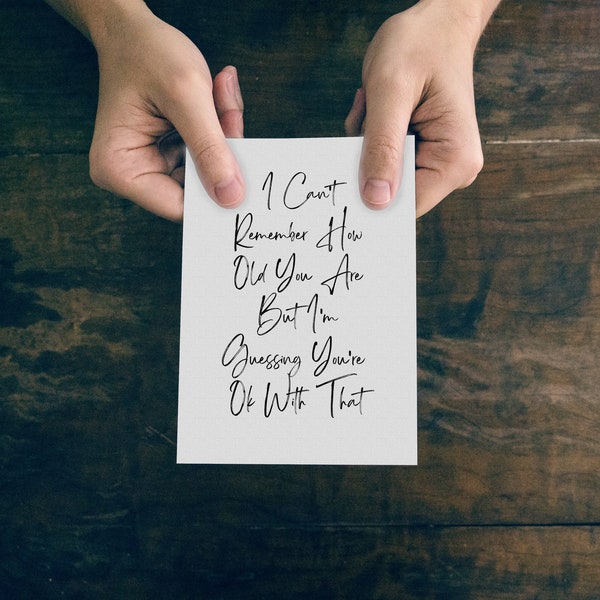 I Can't
Remember How
Old You Are
But I'm
Guessing You're
Ok With That